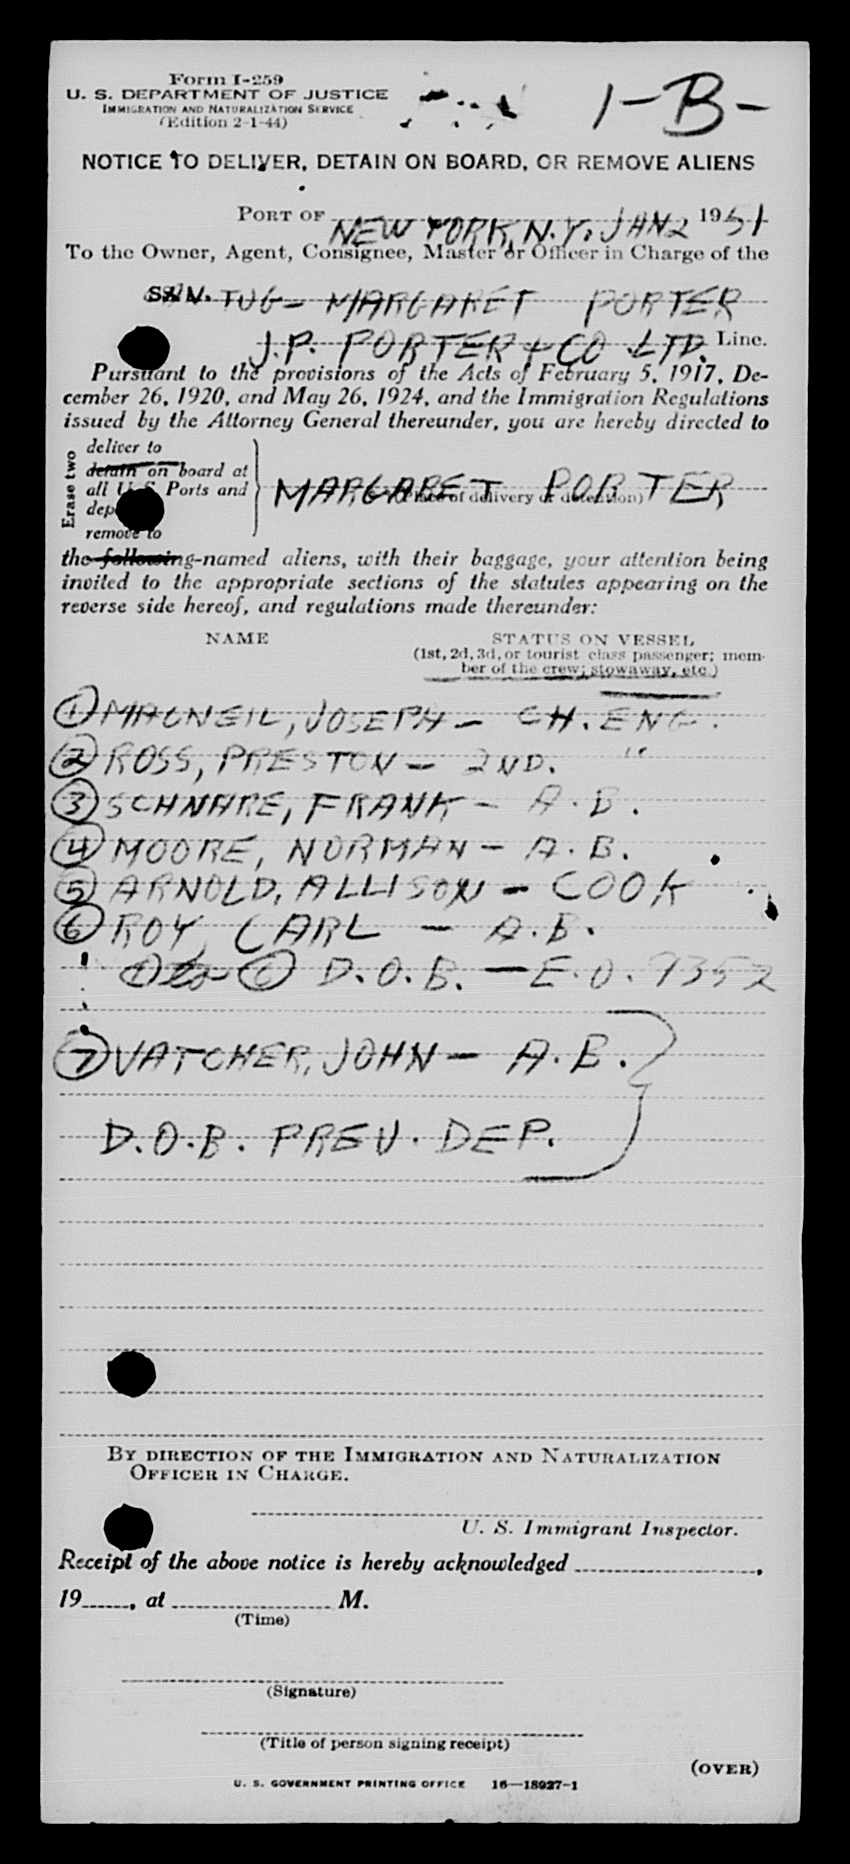 Form I-259
U. S. DEPARTMENT OF JUSTICE
IMMIGRATION AND NATURALIZATION SERVICE
(Edition 2-1-44)
1-B-
NOTICE TO DELIVER, DETAIN ON BOARD, OR REMOVE ALIENS
PORT OF NEW YORK, N.Y. JAN 2 1951
To the Owner, Agent, Consignee, Master or Officer in Charge of the
TUG- MARGARET PORTER
J.P. PORTER & CO LTD. Line.
Pursuant to the provisions of the Acts of February 5, 1917, De-
cember 26, 1920, and May 26, 1924, and the Immigration Regulations
issued by the Attorney General thereunder, you are hereby directed to
Erase two
deliver to
detain on board at
all U S Ports and
remove to
MARGARET PORTER
(Place of delivery or detention)
the following-named aliens, with their baggage, your attention being
invited to the appropriate sections of the statutes appearing on the
reverse side hereof, and regulations made thereunder:
NAME STATUS ON VESSEL
(1st, 2d, 3d, or tourist class passenger; mem-
ber of the crew; stowaway, etc.)
1 MACNEIL, JOSEPH - CH. ENG.
2 ROSS, PRESTON - 2ND. "
3 SCHNARE, FRANK - A.B.
4 MOORE, NORMAN - A.B.
5 ARNOLD, ALLISON - COOK
6 ROY, CARL - A.B.
1 to 6 D.O.B. - E.O. 9352
7 VATCHER, JOHN - A.B.
D.O.B. PREV. DEP.
BY DIRECTION OF THE IMMIGRATION AND NATURALIZATION
OFFICER IN CHARGE.
U. S. Immigrant Inspector.
Receipt of the above notice is hereby acknowledged ,
19 , at M.
(Time)
(Signature)
(Title of person signing receipt)
(OVER)
U. S. GOVERNMENT PRINTING OFFICE 16—18927-1